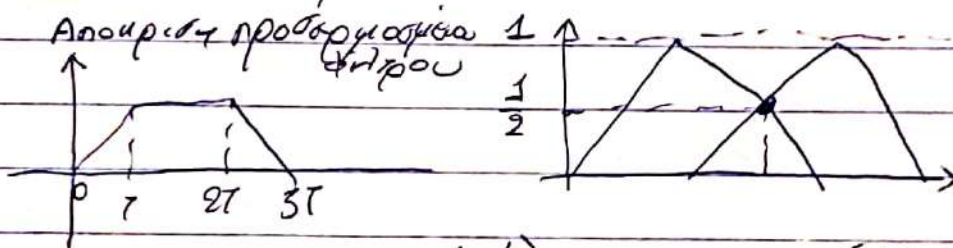 Αποκριση προσαρμοσμένου φίλτρου
1
1/2
0 T 2T 3T